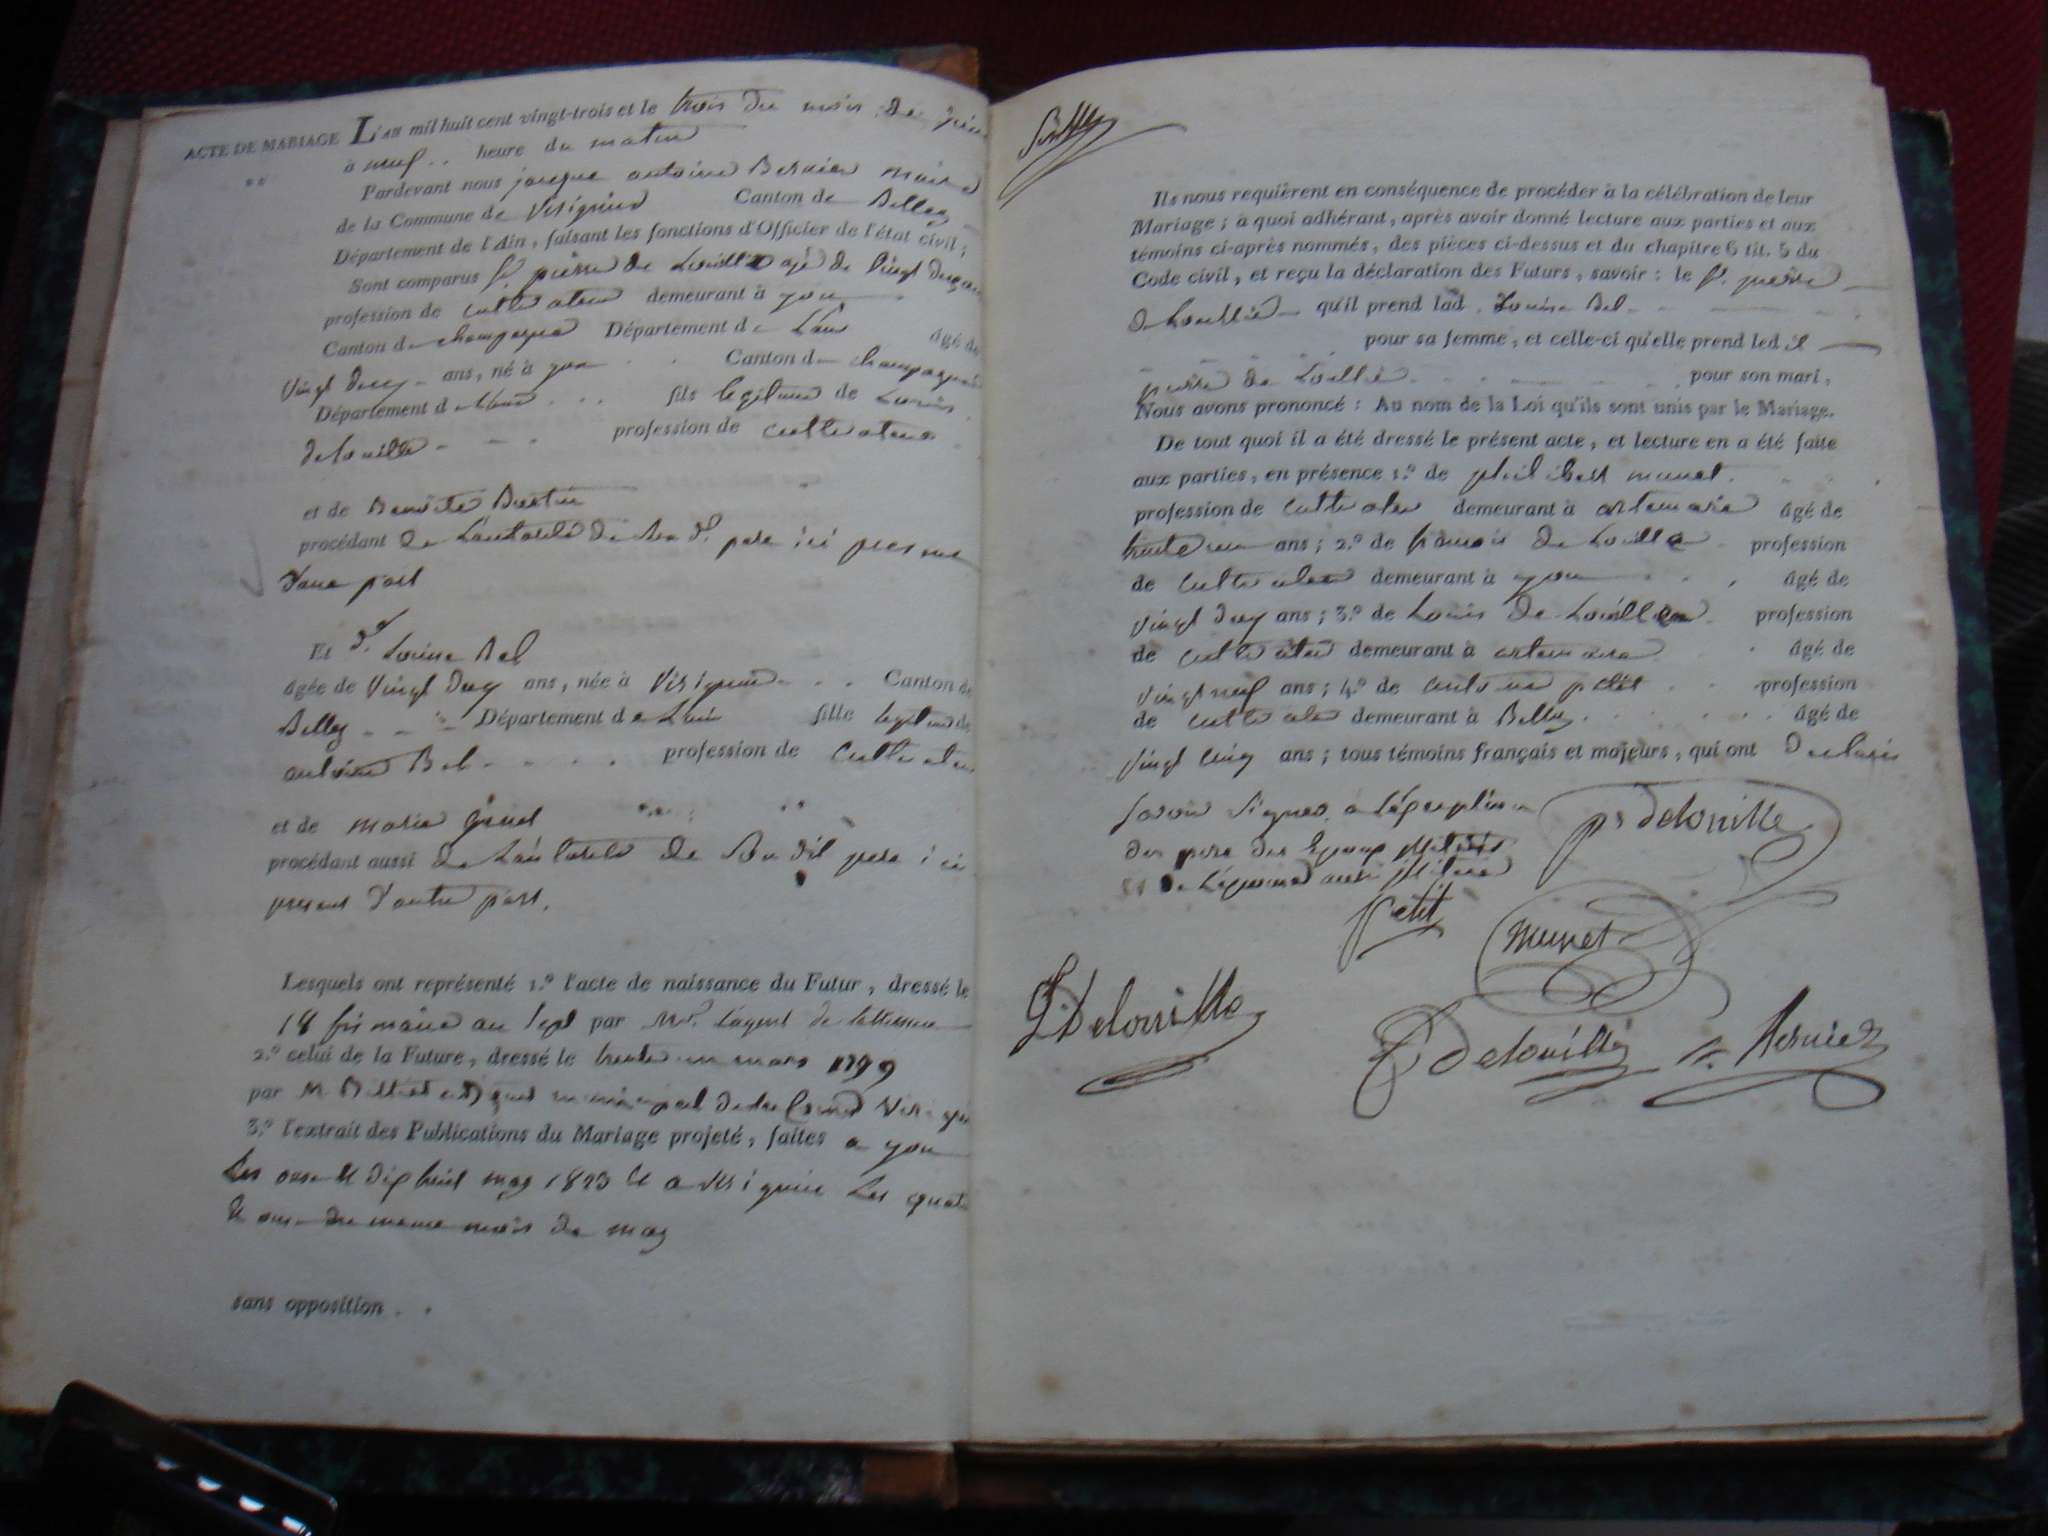 ACTE DE MARIAGE L'an mil huit cent vingt-trois et le trois du mois de juin
à neuf heure du matin
Pardevant nous jacque antoine Bernier maire
de la Commune de Virignin Canton de Belley
Département de l'Ain, faisant les fonctions d'Officier de l'état civil;
Sont comparus Sr. pierre de Louille agé de vingt deux ans
profession de cultivateur demeurant à yon
Canton de champagne Département de L'ain âgé de
vingt deux ans, né à yon Canton de champagne
Département de L'ain fils legitime de Louis
delouille profession de cultivateur
et de Benoite
procédant de L'autorité de son d. pere ici present
d'une part
Et de. Louise Bel
âgée de vingt deux ans, née à Virignin Canton de
Belley Département de L'ain fille legitime de
antoine Bel profession de cultivateur
et de marie
procédant aussi de L'autorité de Son dit pere ici
present d'autre part.
Lesquels ont représenté 1.º l'acte de naissance du Futur, dressé le
18 frimaire an sept par Mr. L'agent de
2.º celui de la Future, dressé le trente un mars 1799
par M. municipal de
3.º l'extrait des Publications du Mariage projeté, faites a yon
Les onze et dix huit may 1823 et a virignin Les quatre
et onze du meme mois de may
sans opposition
Ils nous requièrent en conséquence de procéder à la célébration de leur
Mariage; à quoi adhérant, après avoir donné lecture aux parties et aux
témoins ci-après nommés, des pièces ci-dessus et du chapitre 6 tit. 5 du
Code civil, et reçu la déclaration des Futurs, savoir: le Sr. pierre
de Louille qu'il prend lad. Louise Bel
pour sa femme, et celle-ci qu'elle prend led it
pierre de Louille pour son mari,
Nous avons prononcé: Au nom de la Loi qu'ils sont unis par le Mariage.
De tout quoi il a été dressé le présent acte, et lecture en a été faite
aux parties, en présence 1.º de philibert munet
profession de cultivateur demeurant à artemare âgé de
trente un ans; 2.º de francois de Louille profession
de cultivateur demeurant à yon âgé de
vingt deux ans; 3.º de Louis de Louille profession
de cultivateur demeurant à artemare âgé de
vingt neuf ans; 4.º de antoine petit profession
de cultivateur demeurant à Belley âgé de
vingt cinq ans; tous témoins français et majeurs, qui ont declarés
savoir signer a L'exception
des pere des Epoux
et de L'epouse aussi
pre delouille
petit
munet
Delouille
Delouille
Bernier